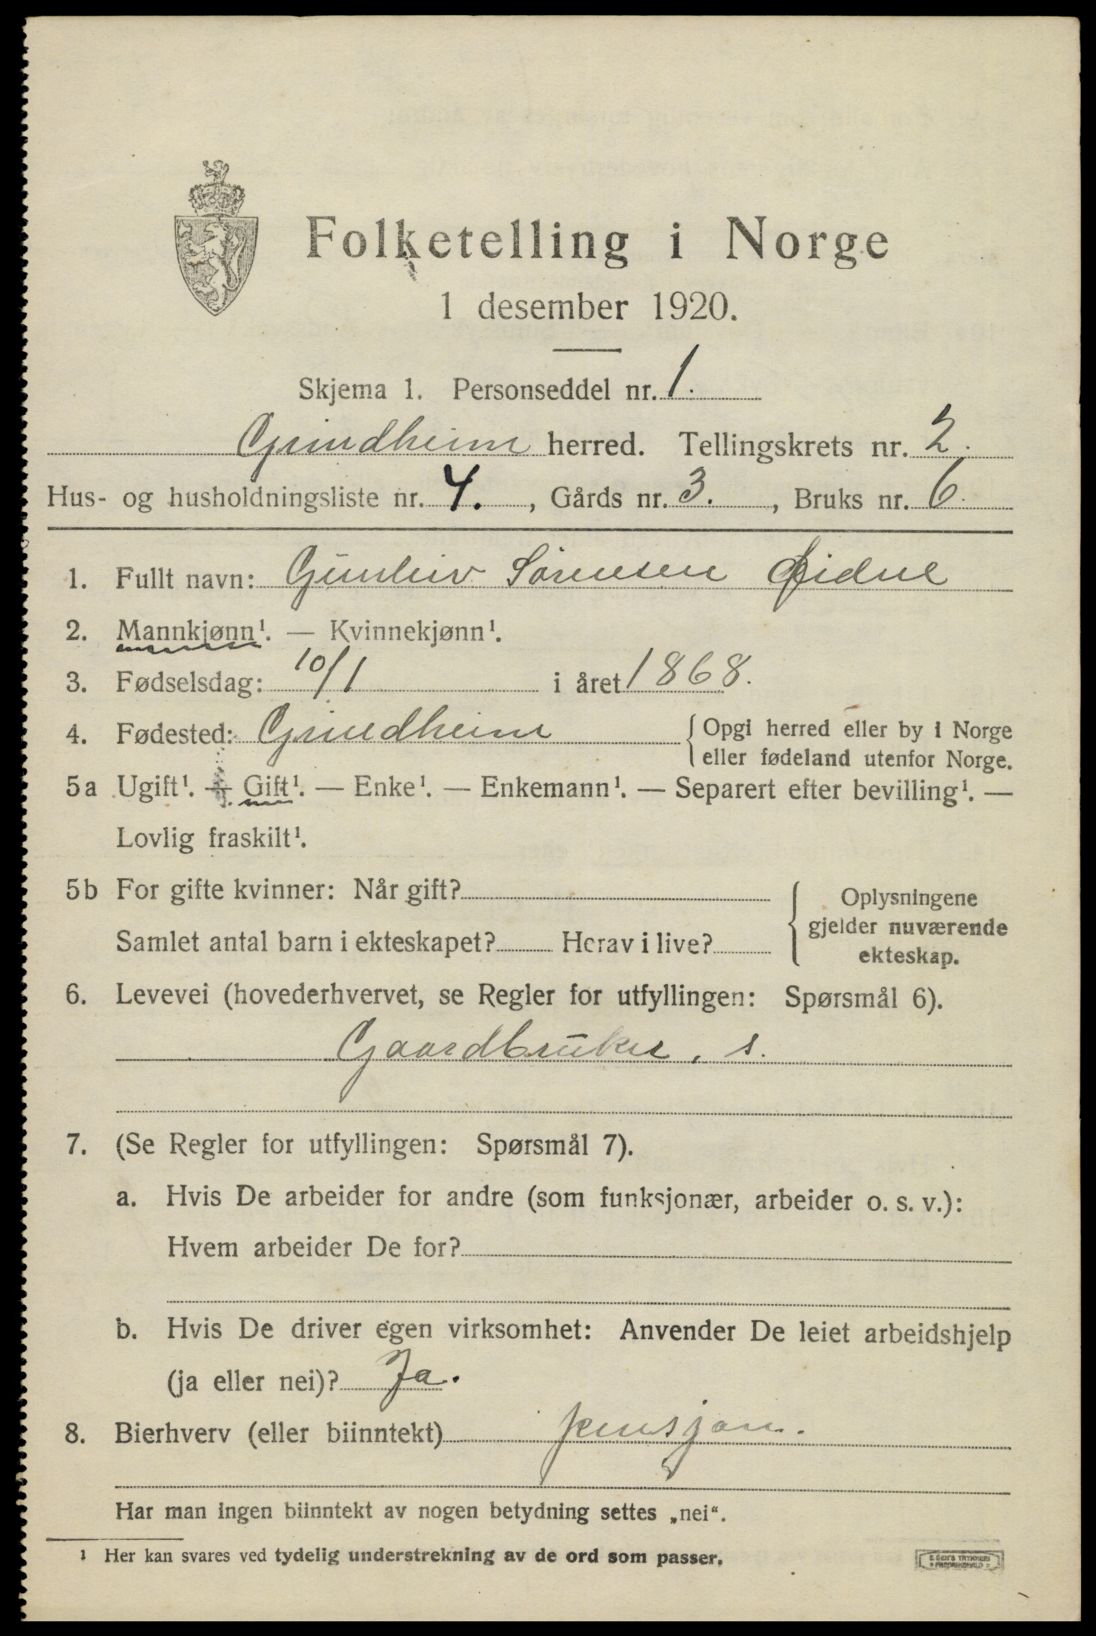 Folketelling i Norge
1 desember 1920.
Skjema 1. Personseddel nr. 1.
Grindheim herred. Tellingskrets nr. 2.
Hus- og husholdningsliste nr. 4. , Gårds nr. 3. , Bruks nr. 6.
1. Fullt navn: Gunleiv Sørensen Øidne
2. Mannkjønn¹. — Kvinnekjønn¹.
3. Fødselsdag: 10/1 i året 1868.
4. Fødested: Grindheim { Opgi herred eller by i Norge
eller fødeland utenfor Norge.
5a Ugift¹. — Gift¹. — Enke¹. — Enkemann¹. — Separert efter bevilling¹. —
Lovlig fraskilt¹.
5b For gifte kvinner: Når gift?
Samlet antal barn i ekteskapet? Herav i live?
{ Oplysningene
gjelder nuværende
ekteskap.
6. Levevei (hovederhvervet, se Regler for utfyllingen: Spørsmål 6).
Gaardbruker, s.
7. (Se Regler for utfyllingen: Spørsmål 7).
a. Hvis De arbeider for andre (som funksjonær, arbeider o. s. v.):
Hvem arbeider De for?
b. Hvis De driver egen virksomhet: Anvender De leiet arbeidshjelp
(ja eller nei)? Ja.
8. Bierhverv (eller biinntekt) pensjon.
Har man ingen biinntekt av nogen betydning settes „nei“.
¹ Her kan svares ved tydelig understrekning av de ord som passer.
E. SEM'S TRYKKERI
FREDRIKSHALD